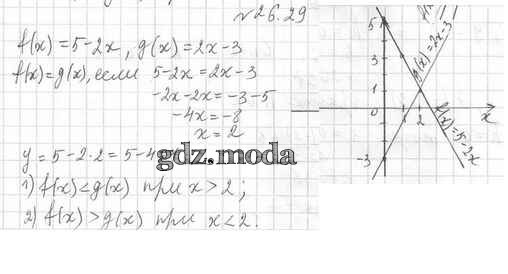 №26.29
f(x) = 5-2x, g(x) = 2x-3
f(x) = g(x), если 5-2x = 2x-3
-2x-2x = -3-5
-4x = -8
x = 2
y = 5-2·2 = 5-4
gdz.moda
1) f(x) < g(x) при x > 2;
2) f(x) > g(x) при x < 2.
5
3
g(x) = 2x-3
1
0
1 2
x
f(x) = 5-2x
-3